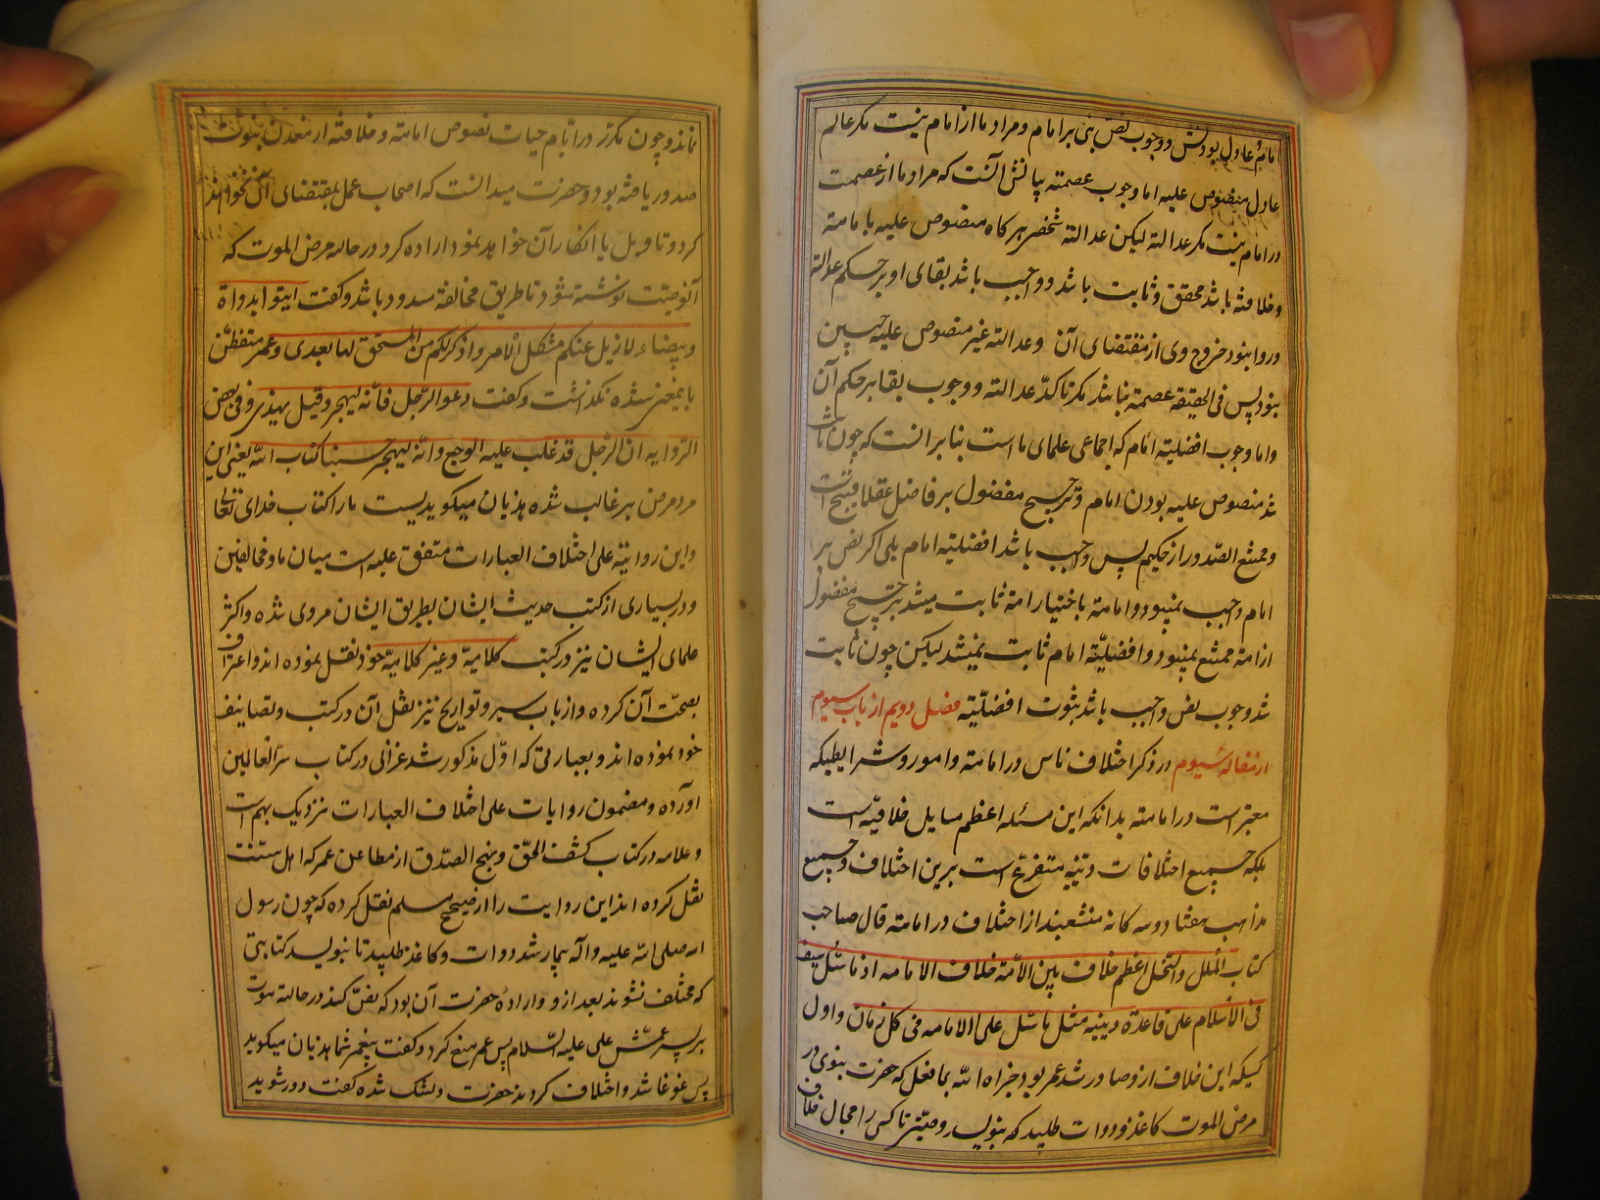 امام عادل بودنش و وجوب نص نبی بر امام و مراد ما از امام نیست مکر عالم
عادل منصوص علیه اما وجوب عصمته بیانش آنست که مراد ما از عصمت
در امام نیست مکر عدالته لیکن عدالته شخص هر کاه منصوص علیه بامامته
و خلافته باشد محقق و ثابت باشد و واجب باشد بقای او بر حکم عدالته
و روا نبود خروج وی از مقتضای آن وعدالته غیر منصوص علیه چنین
نبود پس فی الحقیقه عصمته نباشد مکر تاکد عدالته و وجوب بقا بر حکم آن
واما وجوب افضلیته امام که اجماعی علمای ما است بنا بر انست که چون ثابت
شد منصوص علیه بودن امام و ترجیح مفضول بر فاضل عقلا قبیح است
و ممتنع الصدور از حکیم پس واجب باشد افضلیته امام بلی اکر نص بر
امام واجب نمیبود و امامته باختیار امة ثابت میشد ترجیح مفضول
از امة ممتنع نمیبود و افضلیته امام ثابت نمیشد لیکن چون ثابت
شد وجوب نص واجب باشد ثبوت افضلیته فصل دویم از باب سیوم
از مقاله سیوم در ذکر اختلاف ناس در امامته و امور و شرایطیکه
معتبر است در امامته بدانکه این مسئله اعظم مسایل خلافیه است
بلکه جمیع اختلافات دینیه متفرع است برین اختلاف و جمیع
مذاهب هفتاد و سه کانه منشعبند از اختلاف در امامته قال صاحب
کتاب الملل والنحل اعظم خلاف بین الامة خلاف الامامه اذ ما سل سیف
فی الاسلام علی قاعدة دینیه مثل ما سل علی الامامه فی کل زمان و اول
کسیکه این خلاف ازو صادر شد عمر بود جزاه الله بما فعل که حضرت نبوی در
مرض الموت کاغذ و دوات طلبید که بنویسد وصیتی تا کس را مجال خلاف
نماند و چون مکرر در ایام حیات نصوص امامته و خلافته از معدن نبوت
صدور یافته بود و حضرت میدانست که اصحاب عمل بمقتضای آن نخواهند
کرد و تاویل یا انکار آن خواهد نمود اراده کرد در حالة مرض الموت که
آنوصیت نوشته شود تا طریق مخالفة مسدود باشد و کفت ایتوا بدواة
وبیضاء لازیل عنکم مشکل الامر واذکر لکم من المستحق لها بعدی و عمر متفطن
باینمعنی شده نکذاشت و کفت دعوا الرجل فانه لیهجر وقیل یهذی وفی بعض
الروایه ان الرجل قد غلب علیه الوجع وانه لیهجر حسبنا کتاب الله یعنی این
مرد مرض بر غالب شده هذیان میکوید بست ما را کتاب خدای تعالی
واین روایته علی اختلاف العبارات متفق علیه است میان ما و مخالفین
و در بسیاری از کتب حدیث ایشان بطریق ایشان مروی شده و اکثر
علمای ایشان نیز در کتب کلامیه و غیر کلامیه خود نقل نموده اند و اعتراف
بصحت آن کرده و ارباب سیر و تواریخ نیز نقل آن در کتب و تصانیف
خود نموده اند و بعبارتی که اول مذکور شد غزالی در کتاب سر العالمین
آورده و مضمون روایات علی اختلاف العبارات نزدیک بهم است
و علامه در کتاب کشف الحق و نهج الصدق از مطاعن عمر که اهل سنت
نقل کرده اند این روایت را از صحیح مسلم نقل کرده که چون رسول
الله صلی الله علیه وآله بیمار شد دوات و کاغذ طلبید تا بنویسد کتابتی
که مختلف نشوند بعد ازو و اراده حضرت آن بود که نص کند در حالته موت
بر پسر عمش علی علیه السلام پس عمر منع کرد و کفت پیغمبر شما هذیان میکوید
پس غوغا شد و اختلاف کردند حضرت دلتنک شده کفت دور شوید